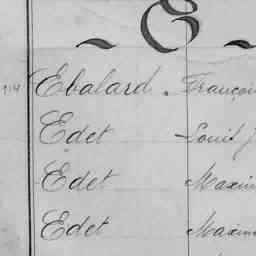 ~ E ~
914 Ebalard. Françoi
Edet Louis J
Edet Maxim
Edet Maxim